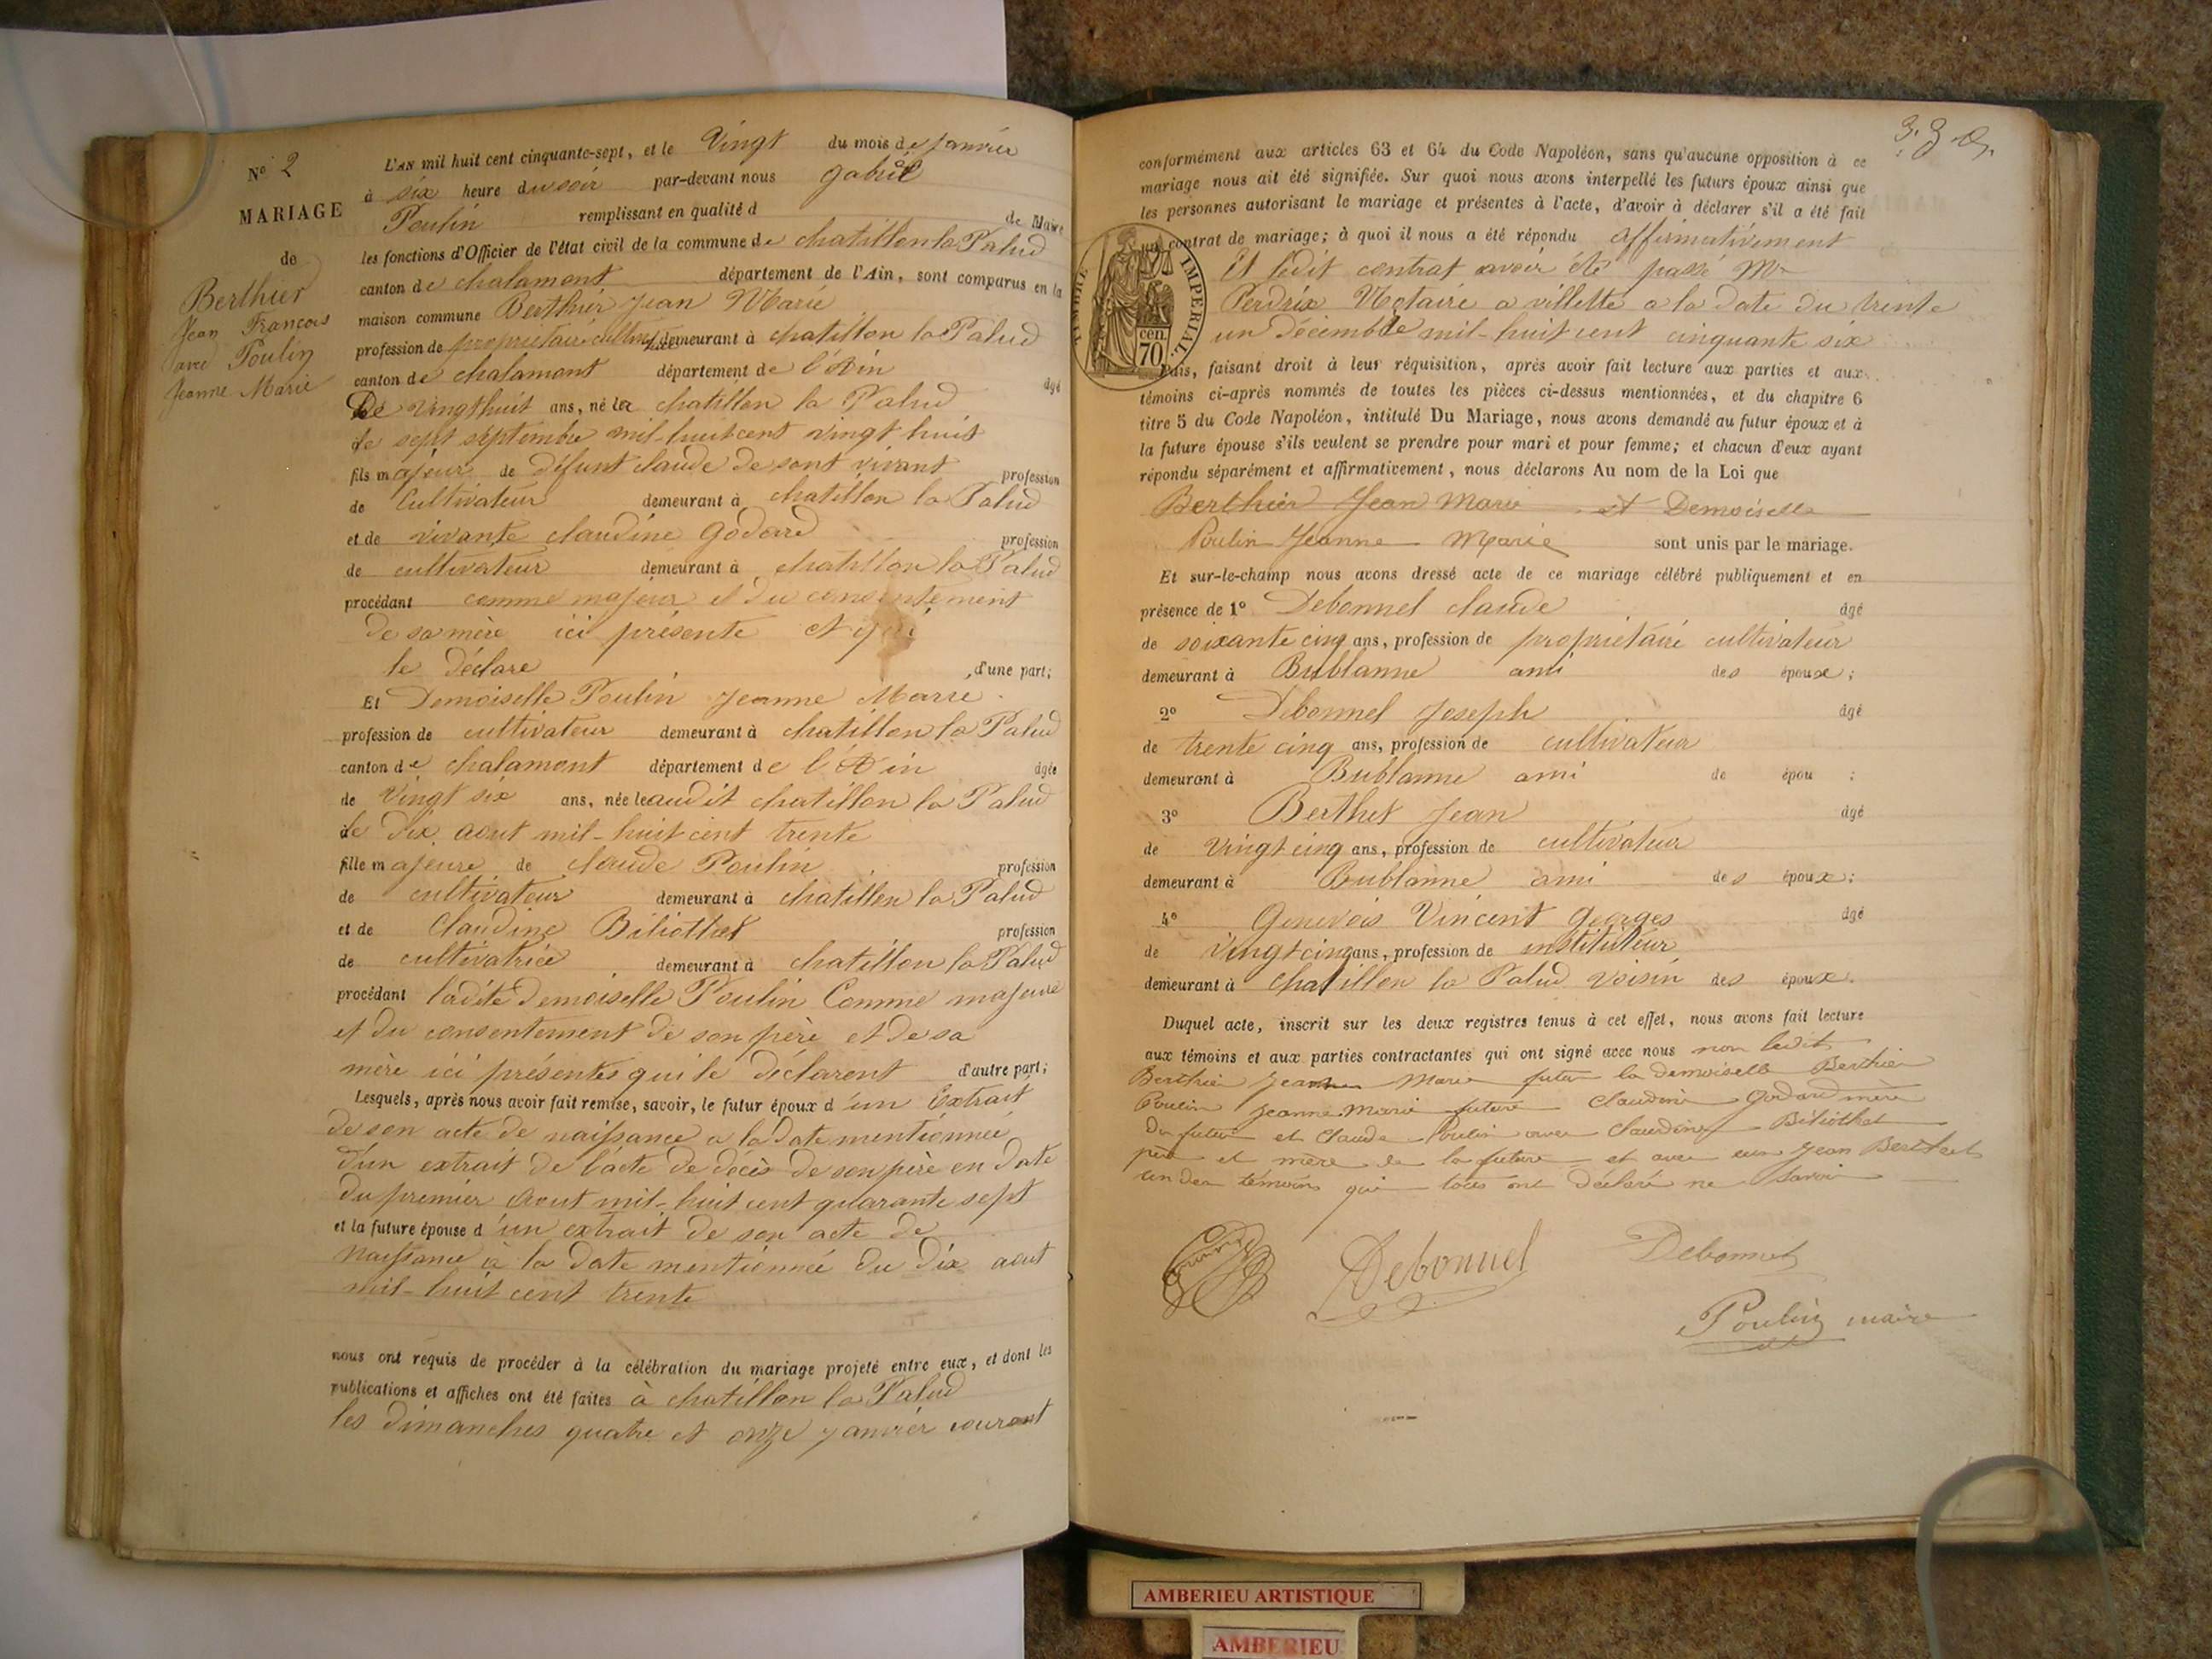 N° 2
MARIAGE
de
Berthier
Jean François
avec Poulin
Jeanne Marie
L'AN mil huit cent cinquante-sept, et le Vingt du mois de Janvier
à six heure du soir par-devant nous gabriel
Poulin remplissant en qualité d de Maire
les fonctions d'Officier de l'état civil de la commune de chatillon la Palud
canton de chalamont département de l'Ain, sont comparus en la
maison commune Berthier Jean Marie
profession de propriétaire cultivateur demeurant à chatillon la Palud
canton de chalamont département de l'Ain âgé
De vingt huit ans, né le a chatillon la Palud
le sept septembre mil-huit cent vingt huit
fils majeur de défunt claude de sont vivant profession
de Cultivateur demeurant à chatillon la Palud
et de vivante claudine Godard profession
de cultivateur demeurant à chatillon la Palud
procédant comme majeur et du consentement
de sa mère ici présente et qui
le déclare d'une part;
Et Demoiselle Poulin Jeanne Marie
profession de cultivateur demeurant à chatillon la Palud
canton de chalamont département de l'Ain âgée
de Vingt six ans, née le audit chatillon la Palud
le dix aout mil-huit cent trente
fille majeure de claude Poulin profession
de cultivateur demeurant à chatillon la Palud
et de Claudine Biliothet profession
de cultivatrice demeurant à chatillon la Palud
procédant ladite Demoiselle Poulin Comme majeure
et du consentement de son père et de sa
mère ici présentes qui le déclarent d'autre part;
Lesquels, après nous avoir fait remise, savoir, le futur époux d'un Extrait
de son acte de naissance a la date mentionnée
d'un extrait de l'acte de décès de son père en date
du premier Aout mil-huit cent quarante sept
et la future épouse d'un extrait de son acte de
naissance à la date mentionnée du dix aout
mil-huit cent trente
nous ont requis de procéder à la célébration du mariage projeté entre eux, et dont les
publications et affiches ont été faites à chatillon la Palud
les dimanches quatre et onze janvier courant
conformément aux articles 63 et 64 du Code Napoléon, sans qu'aucune opposition à ce
mariage nous ait été signifiée. Sur quoi nous avons interpellé les futurs époux ainsi que
les personnes autorisant le mariage et présentes à l'acte, d'avoir à déclarer s'il a été fait
un contrat de mariage; à quoi il nous a été répondu affirmativement
Et ledit contrat avoir été passé Mr
Perdrix Notaire a villette a la date du trente
un décembre mil-huit cent cinquante six
TIMBRE IMPÉRIAL
70 cen.
Puis, faisant droit à leur réquisition, après avoir fait lecture aux parties et aux
témoins ci-après nommés de toutes les pièces ci-dessus mentionnées, et du chapitre 6
titre 5 du Code Napoléon, intitulé Du Mariage, nous avons demandé au futur époux et à
la future épouse s'ils veulent se prendre pour mari et pour femme; et chacun d'eux ayant
répondu séparément et affirmativement, nous déclarons Au nom de la Loi que
Berthier Jean Marie et Demoiselle
Poulin Jeanne Marie sont unis par le mariage.
Et sur-le-champ nous avons dressé acte de ce mariage célébré publiquement et en
présence de 1° Debonnel claude âgé
de soixante cinq ans, profession de propriétaire cultivateur
demeurant à Bublanne ami des époux;
2° Debonnel Joseph âgé
de trente cinq ans, profession de cultivateur
demeurant à Bublanne ami de épou ;
3° Berthet Jean âgé
de Vingt cinq ans, profession de cultivateur
demeurant à Bublanne ami des époux;
4° Genevois Vincent Georges âgé
de Vingt cinq ans, profession de instituteur
demeurant à Chatillon la Palud voisin des époux.
Duquel acte, inscrit sur les deux registres tenus à cet effet, nous avons fait lecture
aux témoins et aux parties contractantes qui ont signé avec nous non ledit
Berthier Jean Marie futur la demoiselle Berthier
Poulin Jeanne Marie future Claudine Godard mère
du futur et Claude Poulin avec Claudine Biliothet
père et mère de la future et avec eux Jean Berthet
un des témoins qui tous ont déclaré ne savoir
Debonnel
Debonnel
Poulin maire
AMBERIEU ARTISTIQUE
AMBERIEU